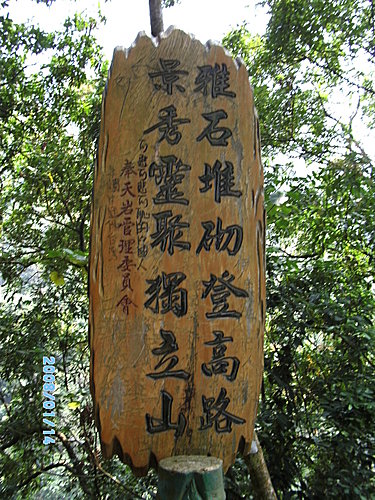 雅石堆砌登高路
景秀靈聚獨立山
奉天岩管理委員會
2009/01/14